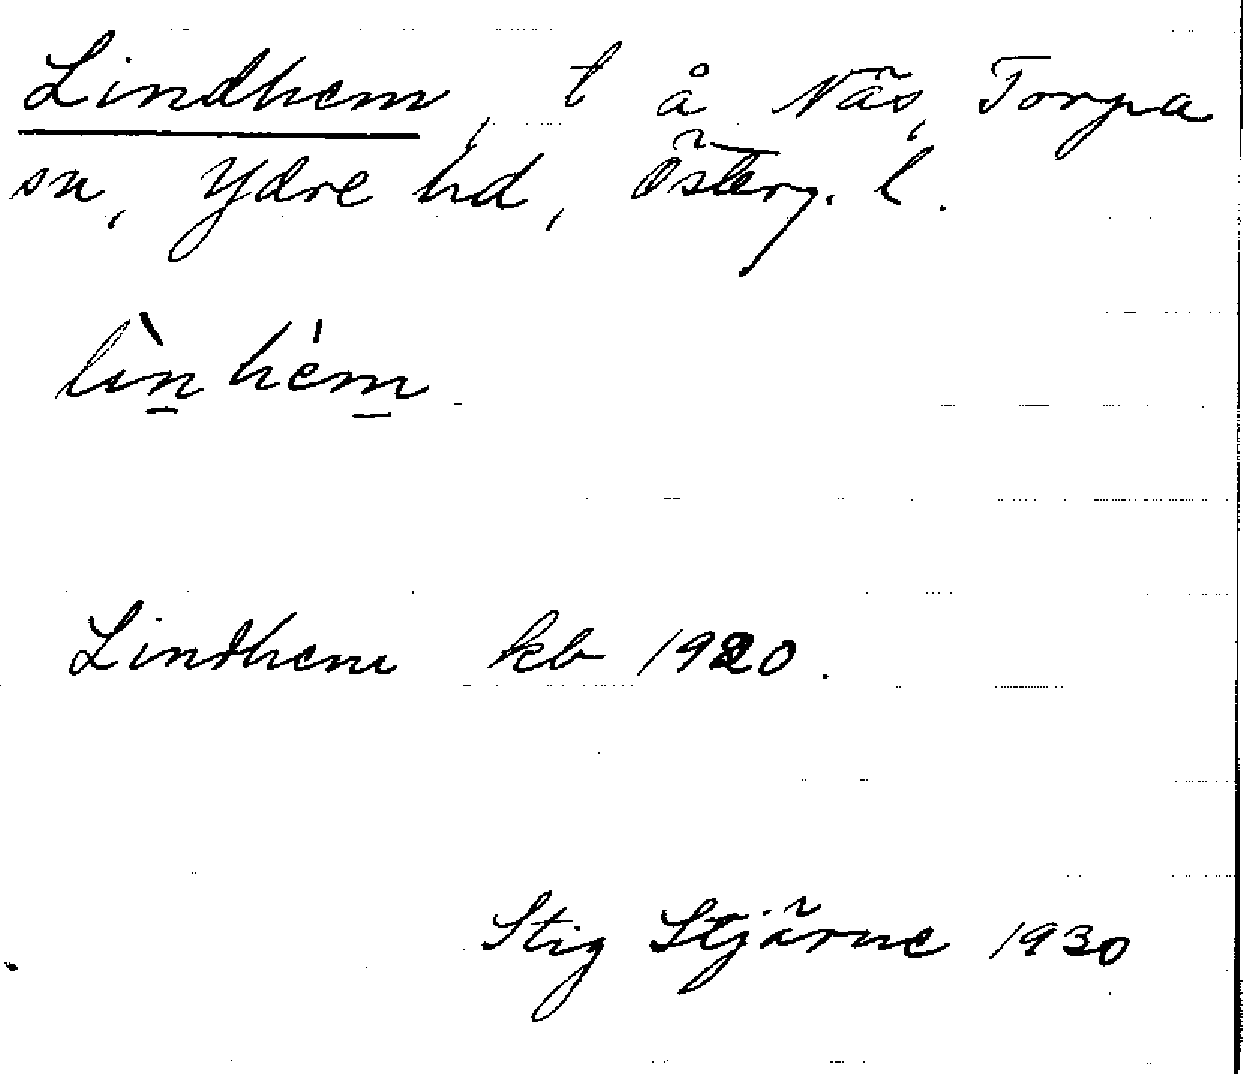 Lindhem, t å Näs, Torpa
sn, Ydre hd, Österg. l.
lìn hém
Lindhem kb 1920.
Stig Stjärne 1930